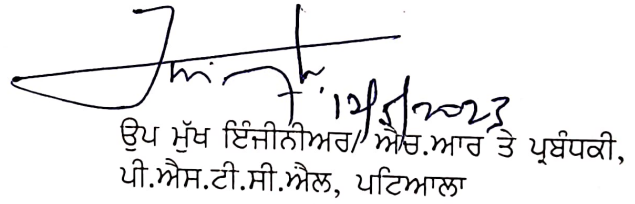 12/5/2023
ਉਪ ਮੁੱਖ ਇੰਜੀਨੀਅਰ/ ਐਚ.ਆਰ ਤੇ ਪ੍ਰਬੰਧਕੀ,
ਪੀ.ਐਸ.ਟੀ.ਸੀ.ਐਲ, ਪਟਿਆਲਾ